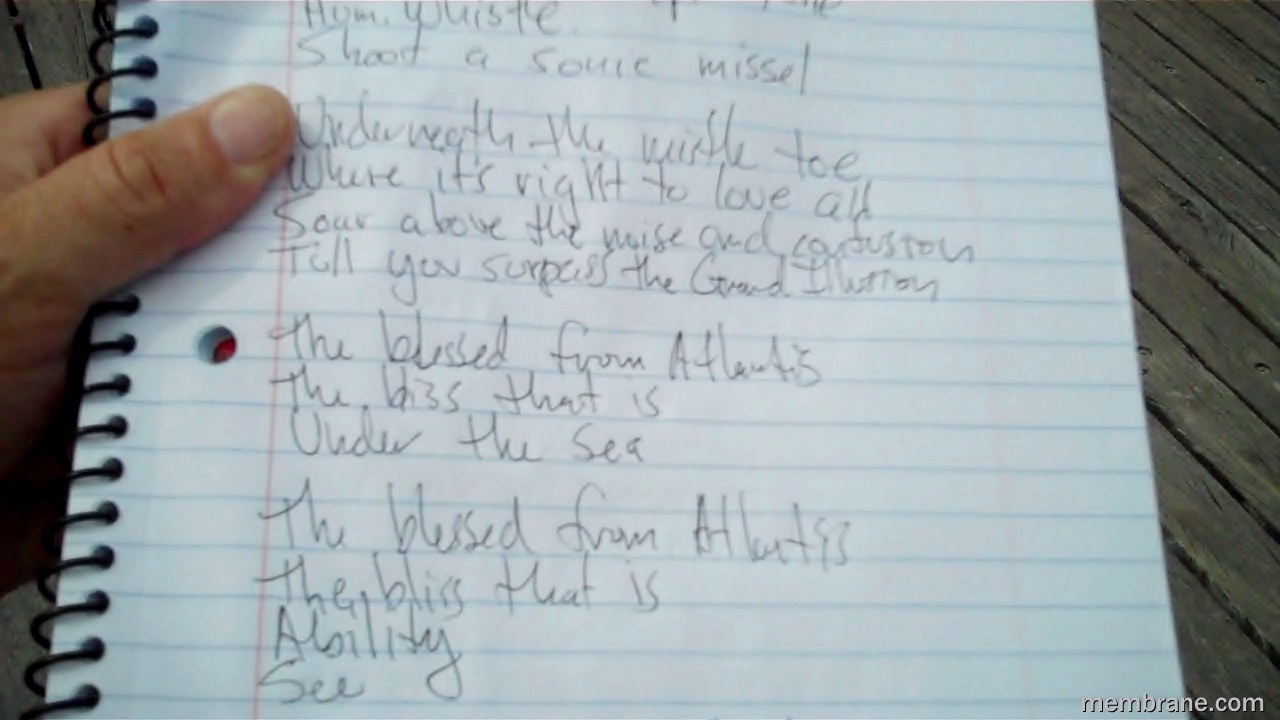 Hum. Whistle.
Shoot a sonic missel
Underneath the mistle toe
Where it's right to love all
Sour above the noise and confusion
Till you surpass the Grand Illusion
The blessed from Atlantis
The bliss that is
Under the Sea
The blessed from Atlantis
The bliss that is
Ability
See
membrane.com